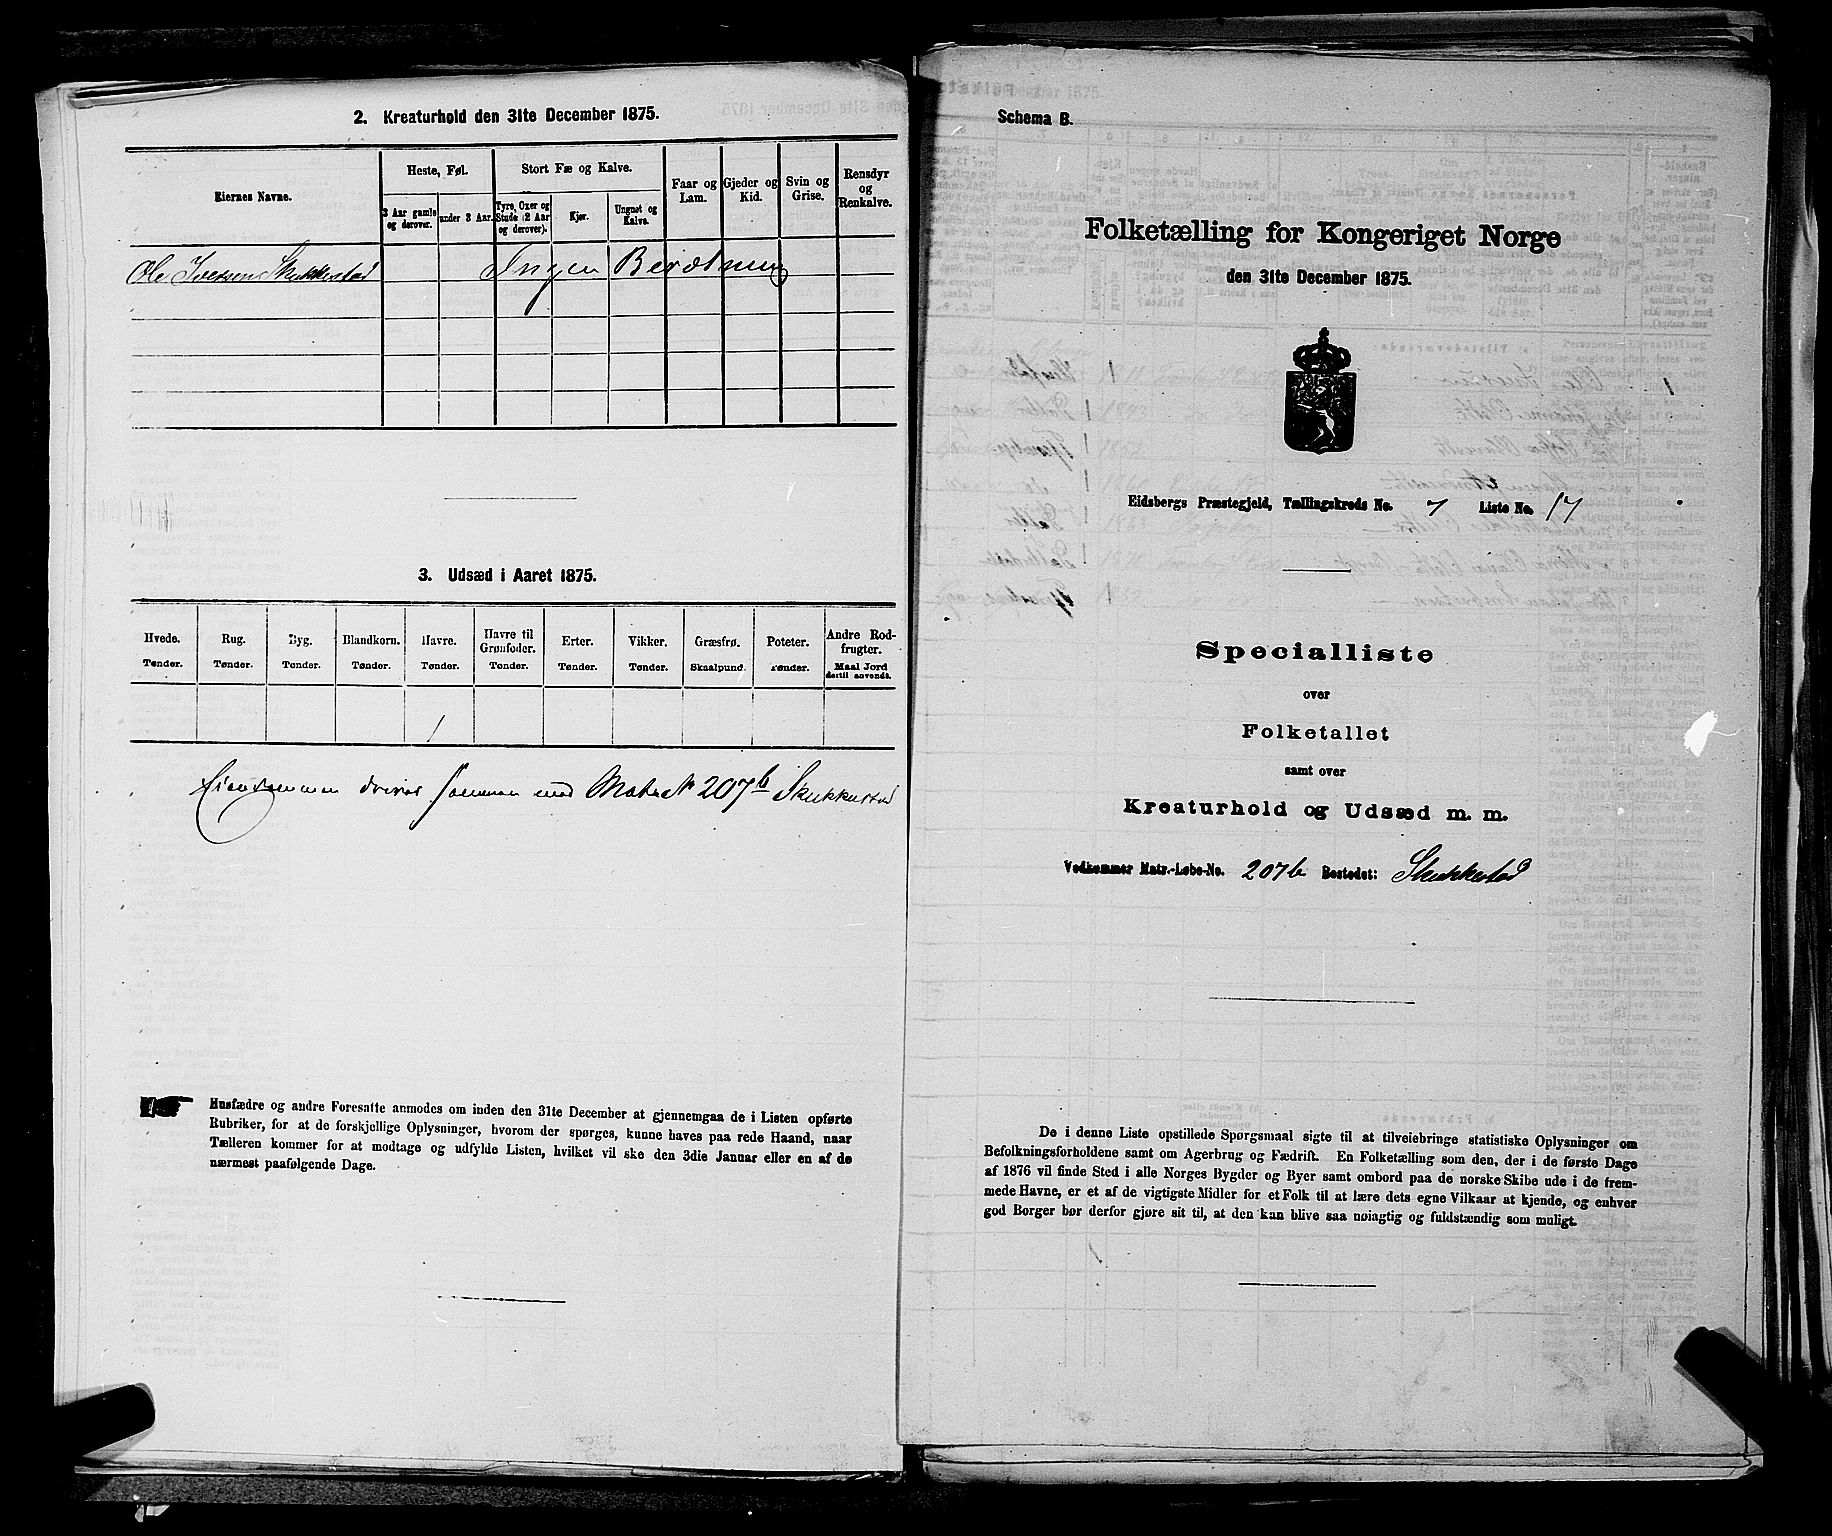 2. Kreaturhold den 31te December 1875.
Eiernes Navne.
Heste, Føl.
3 Aar gamle og derover.
under 3 Aar.
Stort Fæ og Kalve.
Tyre, Oxer og Stude (2 Aar og derover).
Kjør.
Ungnøt og Kalve.
Faar og Lam.
Gjeder og Kid.
Svin og Grise.
Rensdyr og Renkalve.
Ole Iversen Skukkestad Ingen Beretning
3. Udsæd i Aaret 1875.
Hvede. Tønder.
Rug. Tønder.
Byg. Tønder.
Blandkorn. Tønder.
Havre. Tønder.
Havre til Grønfoder. Tønder.
Erter. Tønder.
Vikker. Tønder.
Græsfrø. Skaalpund.
Poteter. Tønder.
Andre Rodfrugter. Maal Jord dertil anvendt.
1
Eiendommen drives sammen med Matr № 207b Skukkestad
Husfædre og andre Foresatte anmodes om inden den 31te December at gjennemgaa de i Listen opførte
Rubriker, for at de forskjellige Oplysninger, hvorom der spørges, kunne haves paa rede Haand, naar
Tælleren kommer for at modtage og udfylde Listen, hvilket vil ske den 3die Januar eller en af de
nærmest paafølgende Dage.
Schema B.
Folketælling for Kongeriget Norge
den 31te December 1875.
Eidsbergs Præstegjeld, Tællingskreds No. 7 Liste No. 17
Specialliste
over
Folketallet
samt over
Kreaturhold og Udsæd m. m.
Vedkommer Matr.-Løbe-No. 207b Bostedet: Skukkestad
De i denne Liste opstillede Spørgsmaal sigte til at tilveiebringe statistiske Oplysninger om
Befolkningsforholdene samt om Agerbrug og Fædrift. En Folketælling som den, der i de første Dage
af 1876 vil finde Sted i alle Norges Bygder og Byer samt ombord paa de norske Skibe ude i de frem-
mede Havne, er et af de vigtigste Midler for et Folk til at lære dets egne Vilkaar at kjende, og enhver
god Borger bør derfor gjøre sit til, at den kan blive saa nøiagtig og fuldstændig som muligt.